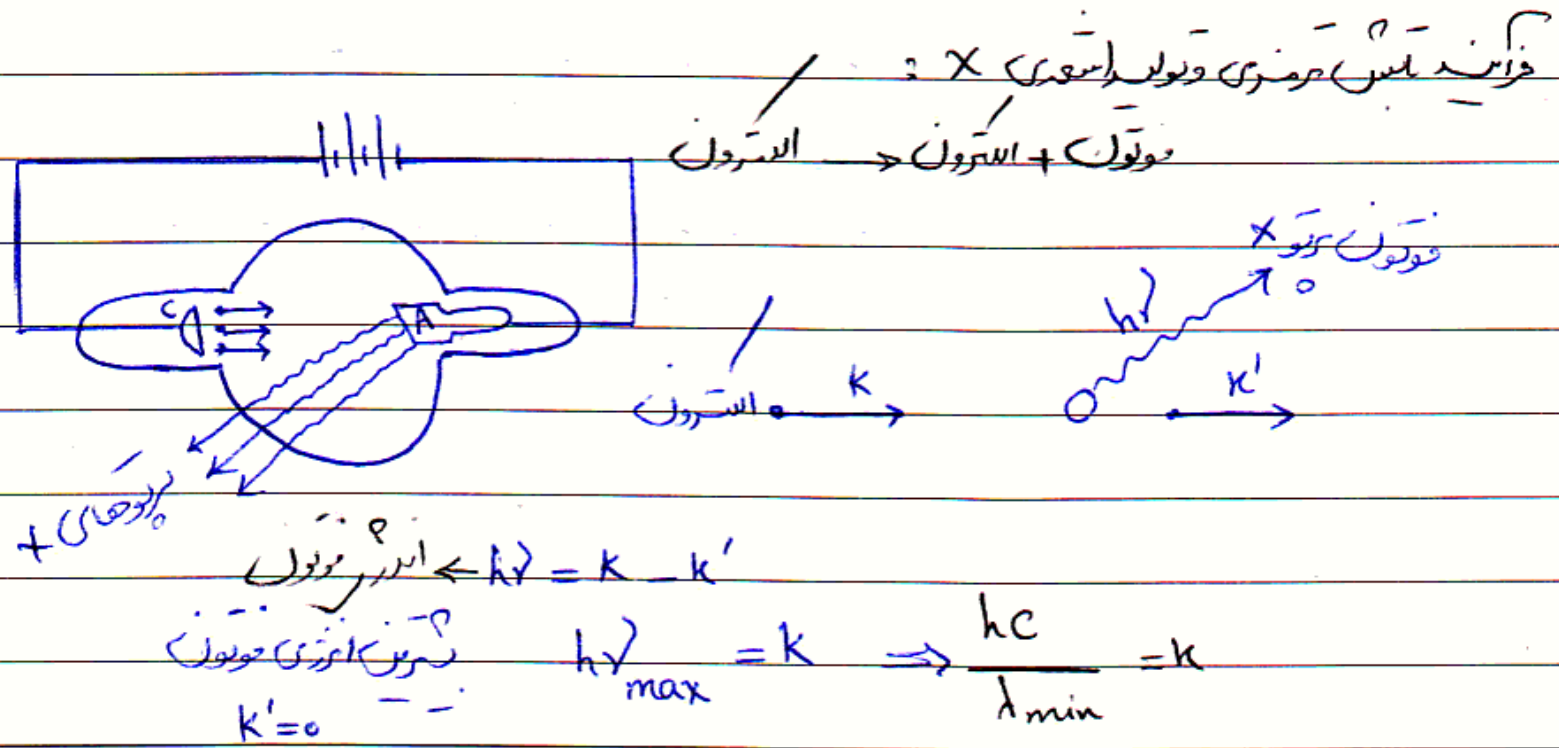 فرآیند تابش ترمزی و تولید اشعه‌ی X :
الکترون → الکترون + فوتون
C
A
پرتوهای +
الکترون
K
hν
فوتون پرتو X
K'
انرژی فوتون ← hν = K - K'
بیشترین انرژی فوتون hν max = K ⇒ hc / λ min = K
K' = 0